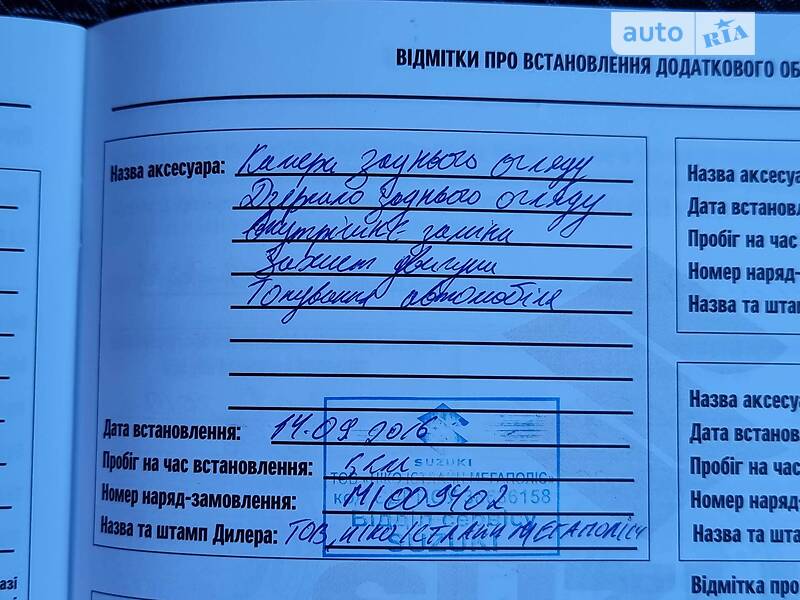 auto RIA
ВІДМІТКИ ПРО ВСТАНОВЛЕННЯ ДОДАТКОВОГО ОБ
Назва аксесуара: Камера заднього огляду
Дзеркало заднього огляду
внутрішнє заміна
Захист двигуна
Тонування автомобіля
Дата встановлення: 14.09.2016
Пробіг на час встановлення: 5 км
Номер наряд-замовлення: МІ009402
Назва та штамп Дилера: ТОВ "НІКО ІСТЛАЙН МЕГАПОЛІС"
SUZUKI
ТОВ "НІКО ІСТЛАЙН МЕГАПОЛІС"
6158
Відділ сервісу
SUZUKI
Назва аксесуа
Дата встановл
Пробіг на час
Номер наряд-
Назва та штам
Назва аксесуа
Дата встановл
Пробіг на час
Номер наряд-
Назва та шта
Відмітка про
разі